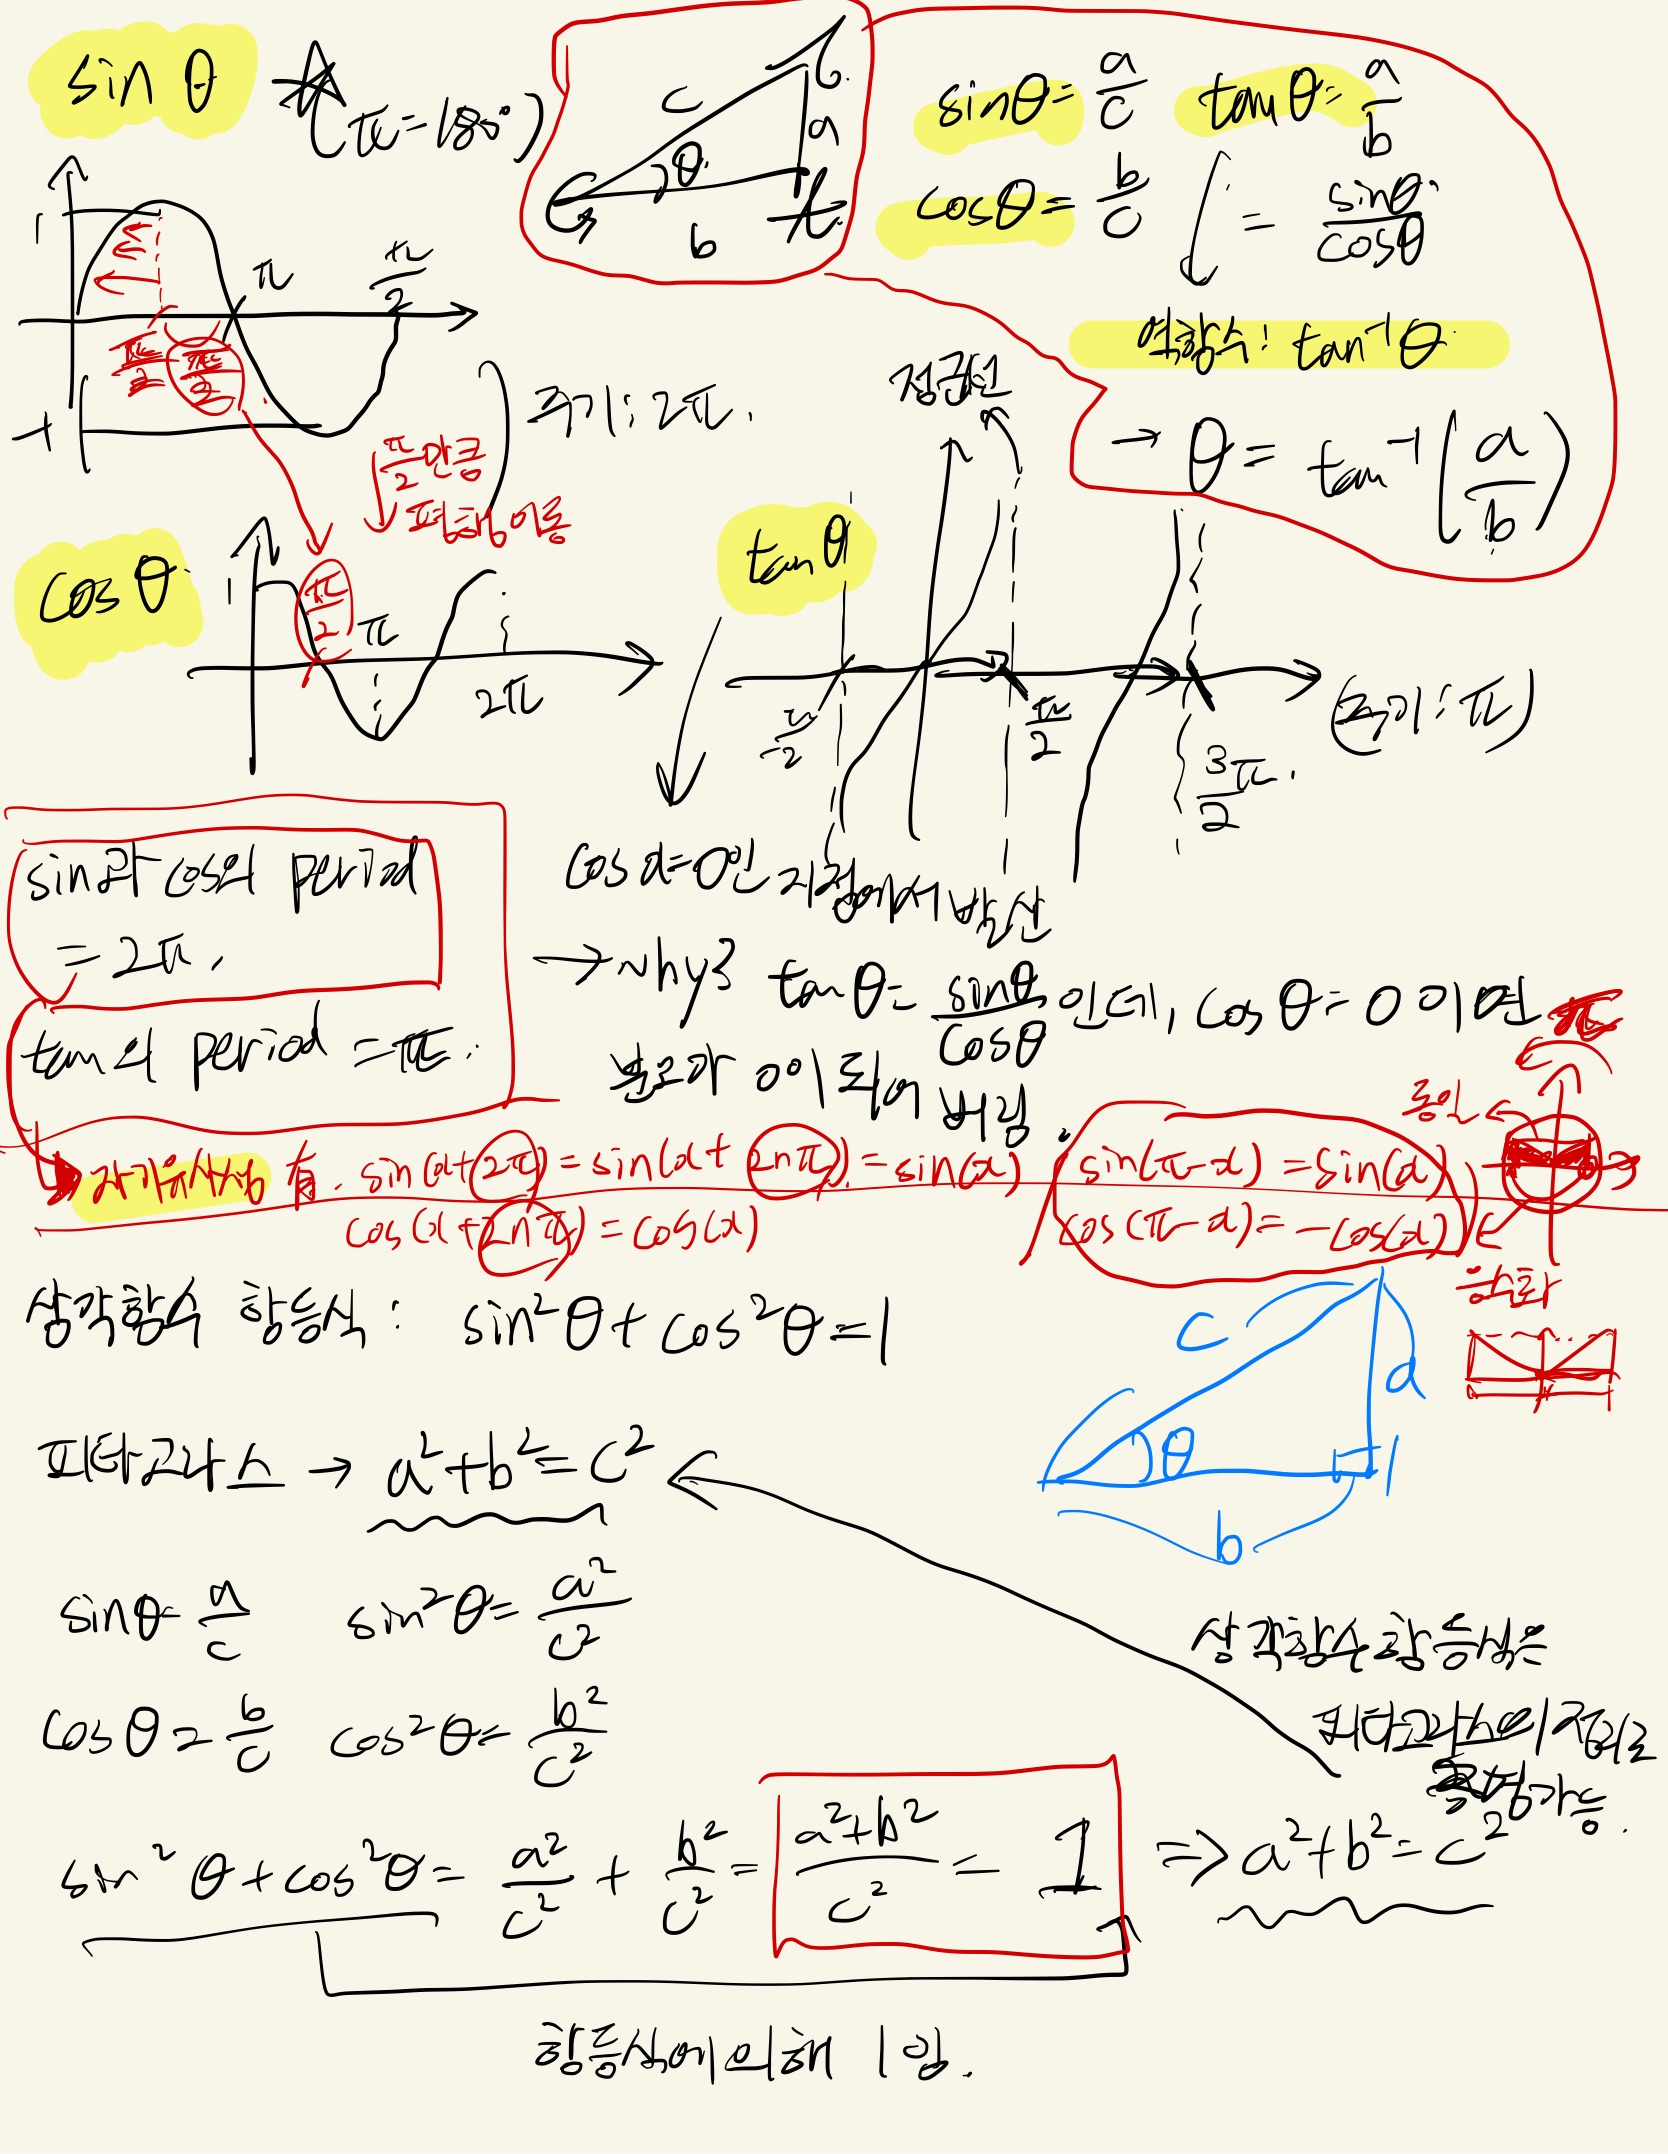 sin θ
(π=180°)
c
a
θ
b
sinθ = a/c
tanθ = a/b
cosθ = b/c
= sinθ/cosθ
역함수: tan⁻¹θ
→ θ = tan⁻¹(a/b)
1
π
π/2
π/2
π/2
-1
주기: 2π.
π/2만큼
평행이동
cos θ
1
π/2
π
2π
tan θ
점근선
-π/2
π/2
3π/2
(주기: π)
sin과 cos의 period
= 2π.
tan의 period = π.
cos α=0인 지점에서 발산
→ why?
tan θ = sinθ/cosθ 인데, cos θ = 0 이면
분모가 0이 되어 버림.
π
동일
자기유사성 有. sin(α+2π) = sin(α+2nπ) = sin(α)
cos(α+2nπ) = cos(α)
sin(π-α) = sin(α)
cos(π-α) = -cos(α)
음수화
삼각함수 항등식: sin²θ + cos²θ = 1
c
a
θ
b
피타고라스 → a²+b²=c²
sinθ = a/c sin²θ = a²/c²
cosθ = b/c cos²θ = b²/c²
삼각함수 항등식은
피타고라스의 정리로
증명가능.
sin²θ + cos²θ = a²/c² + b²/c² = (a²+b²)/c² = 1 ⇒ a²+b²=c²
항등식에 의해 1임.